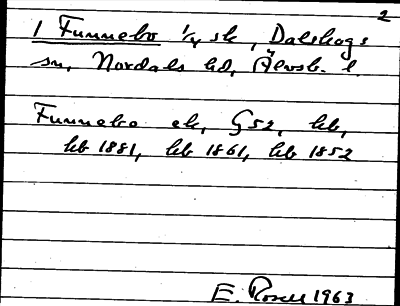 2
1 Funnebo 1/4 sk, Dalskogs
sn, Nordals hd, Älvsb. l.
Funnebo ek, G52, hb,
hb 1881, hb 1861, hb 1852
E. Rosell 1963